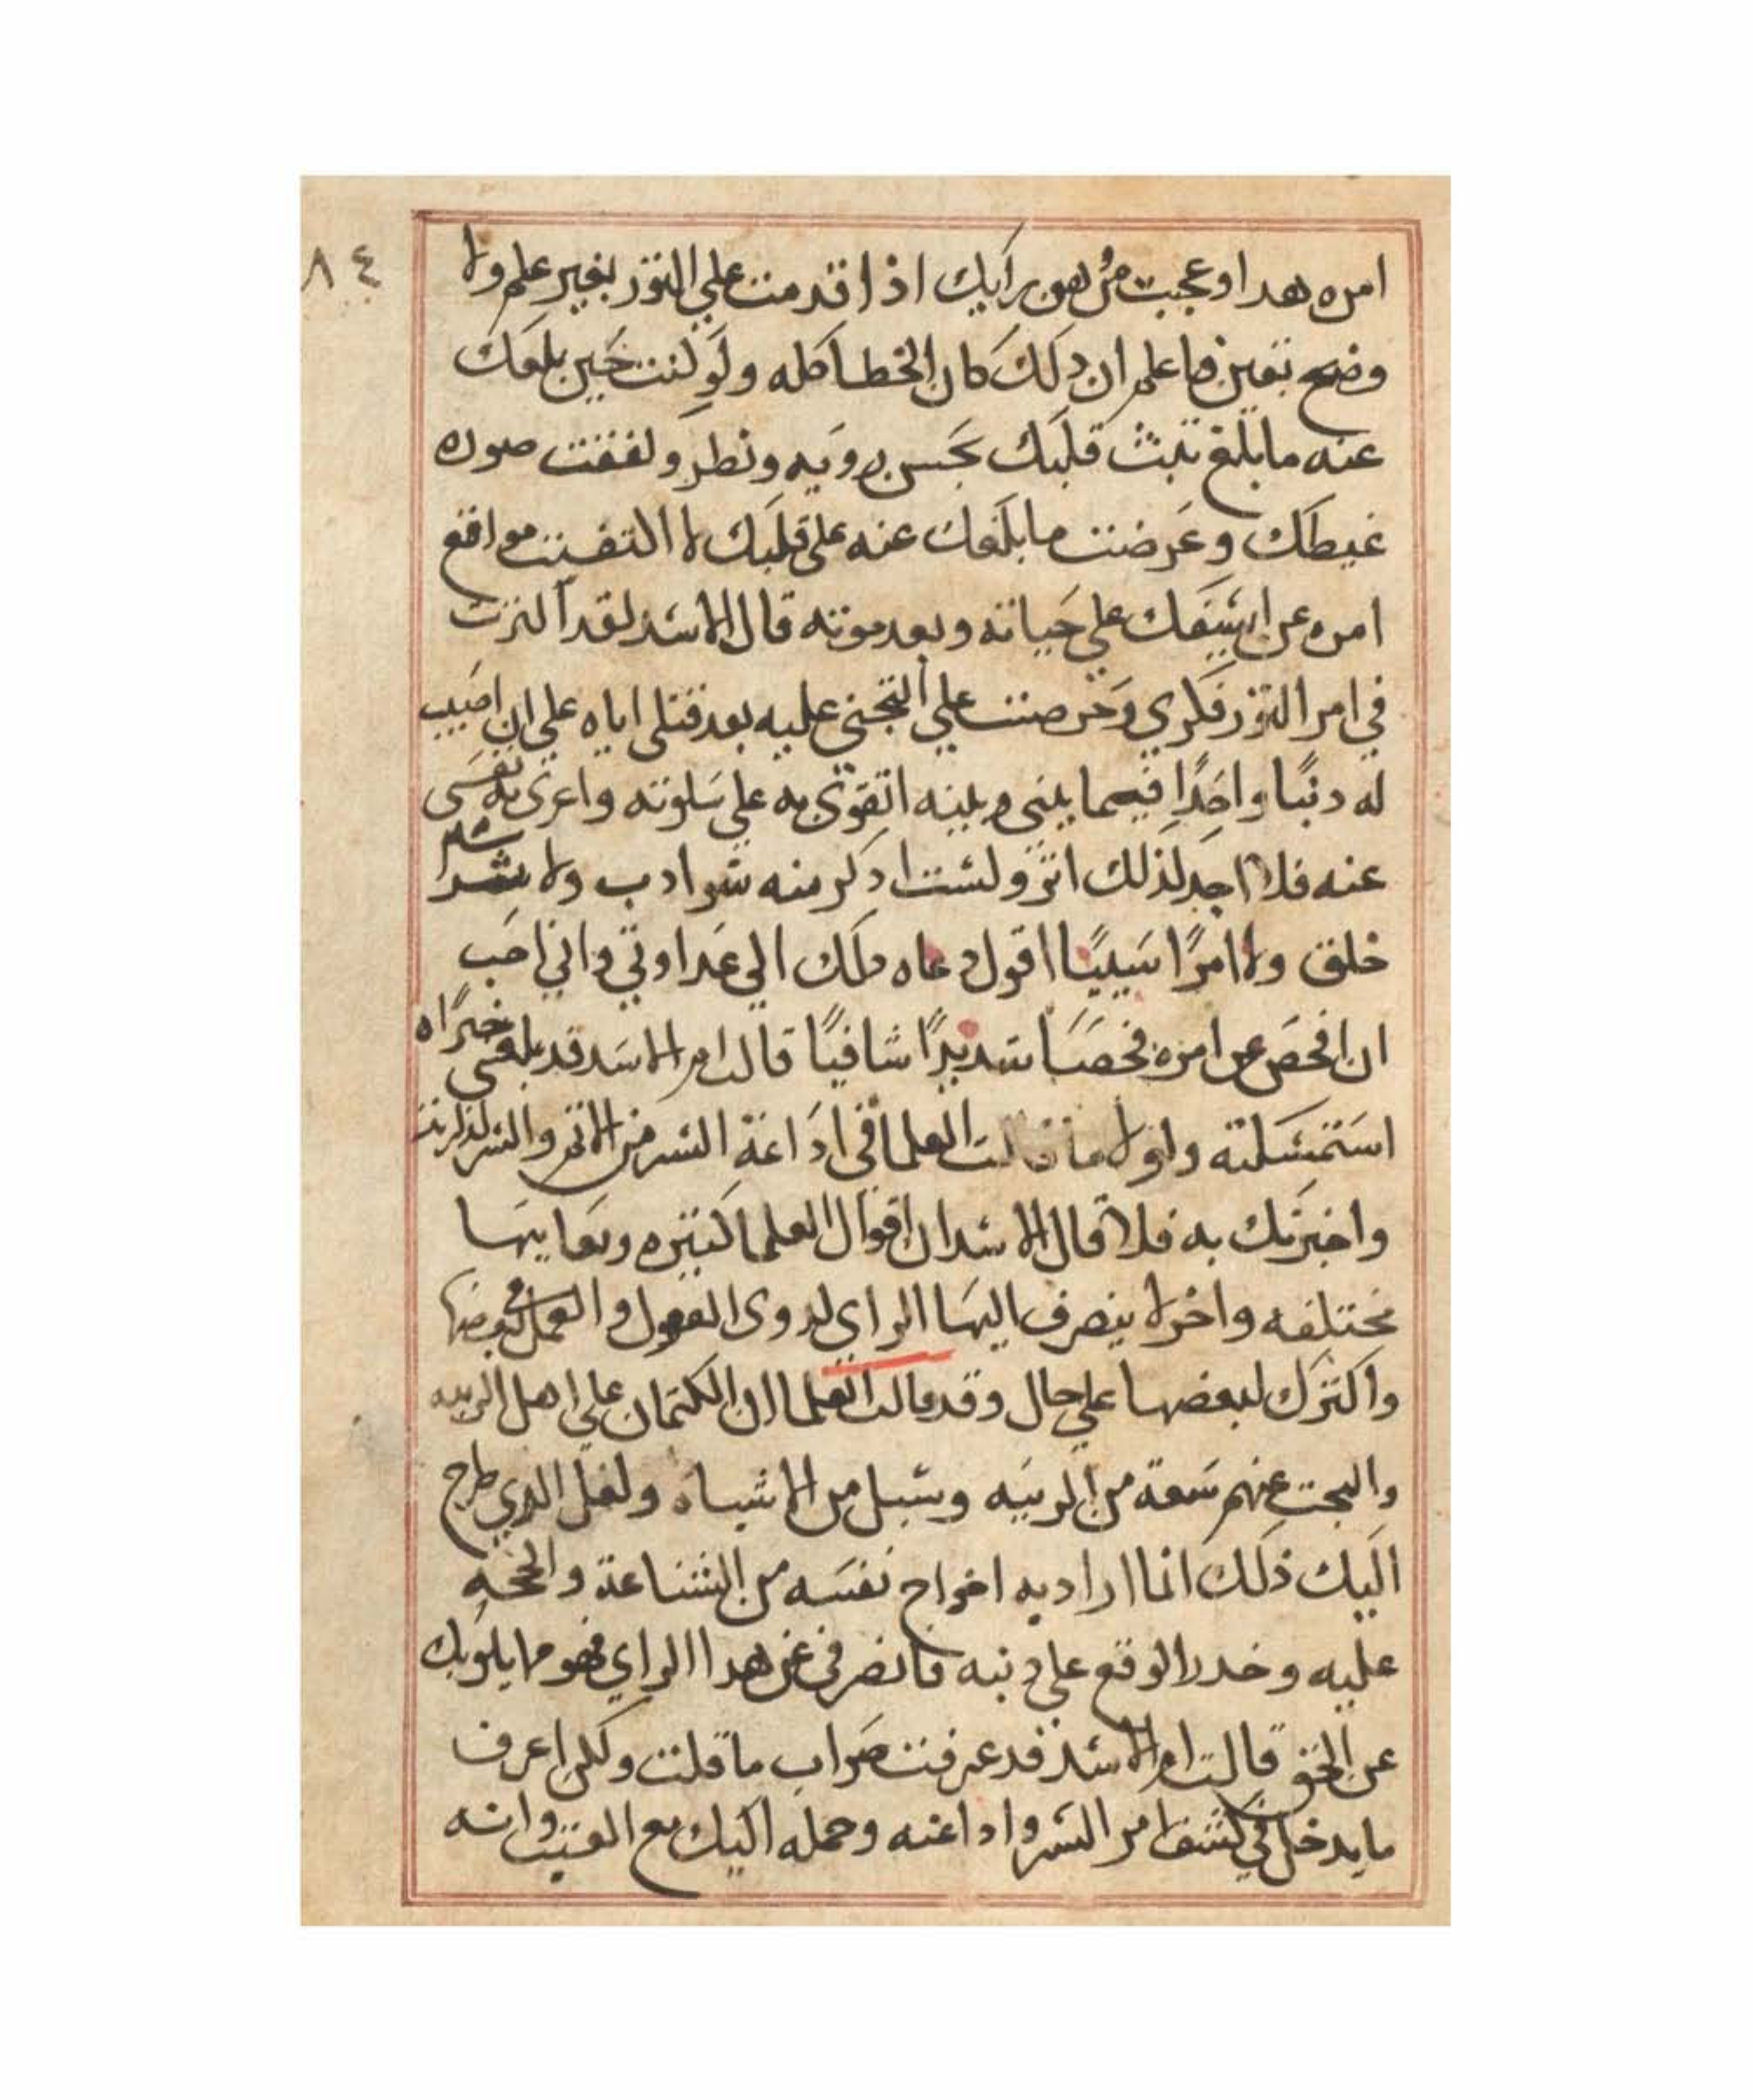 ٨٤
امره هدا وعجبت من هون رايك اذا قدمت علي التور بغير علم ولا
وضح يقين فاعلم ان دلك كان الخطا كله ولو كنت حين بلغك
عنه ما بلغ تبث قلبك بحسن رويه ونطر ولففت صوره
غيطك وعرضت ما بلغك عنه على قلبك لا التفت مواقع
امره عن ايتيفك علي حياته وبعد موته قال الاسد لقد اكترت
في امر التور فكري وحرصت علي التجني عليه بعد قتلى اياه علي ان اصيب
له دنبًا واحدًا فيما بيني وبينه اتقوى به علي سلوته واعرى به نفسى
عنه فلا اجد لذلك اتر ولست ادكر منه شر ادب ولا شر
خلق ولا امرًا سييًا اقول دعاه دلك الي عداوتي واني احب
ان افحص عن امره فحصًا شديدًا شافيًا قالت ام الاسد قد بلغني خبرًا ه
استمسكته ولولا ما قالت العلما في اداعة السر من الاتم والشر لذكرته
واخبرتك به فلا قال الاسد ان اقوال العلما كتيره ومعانيها
مختلفه واخرا ينصرف اليها الراي لدوى العقول والعمل في بعضها
واكترك لبعضها علي حال وقد قالت العلما ان الكتمان علي اهل الريبه
والبحت عنهم سعة من الريبه وسبل من الاشباه ولعل الدي طرح
اليك ذلك انما اراد به اخراج نفسه من الشناعة والحجه
عليه وخدر الوقع على دنبه فانصرفي عن هدا الراي فهو ما يلويك
عن الحق قالت ام الاسد قد عرفت صواب ما قلت ولكن اعرف
ما يدخل في كشف امر السر واداعته وحمله اليك مع العيب وانه